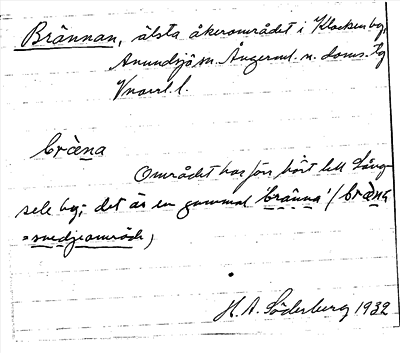 Brännan, älsta åkerområdet i Klocken by,
Anundsjö sn. Ångerml. n. doms. hg
Vnorrl. l.
bràena
Området har förr hört till Lång-
sele by; det är en gammal 'bränna' (bràena
= svedjeområde)
H. A. Söderberg 1932